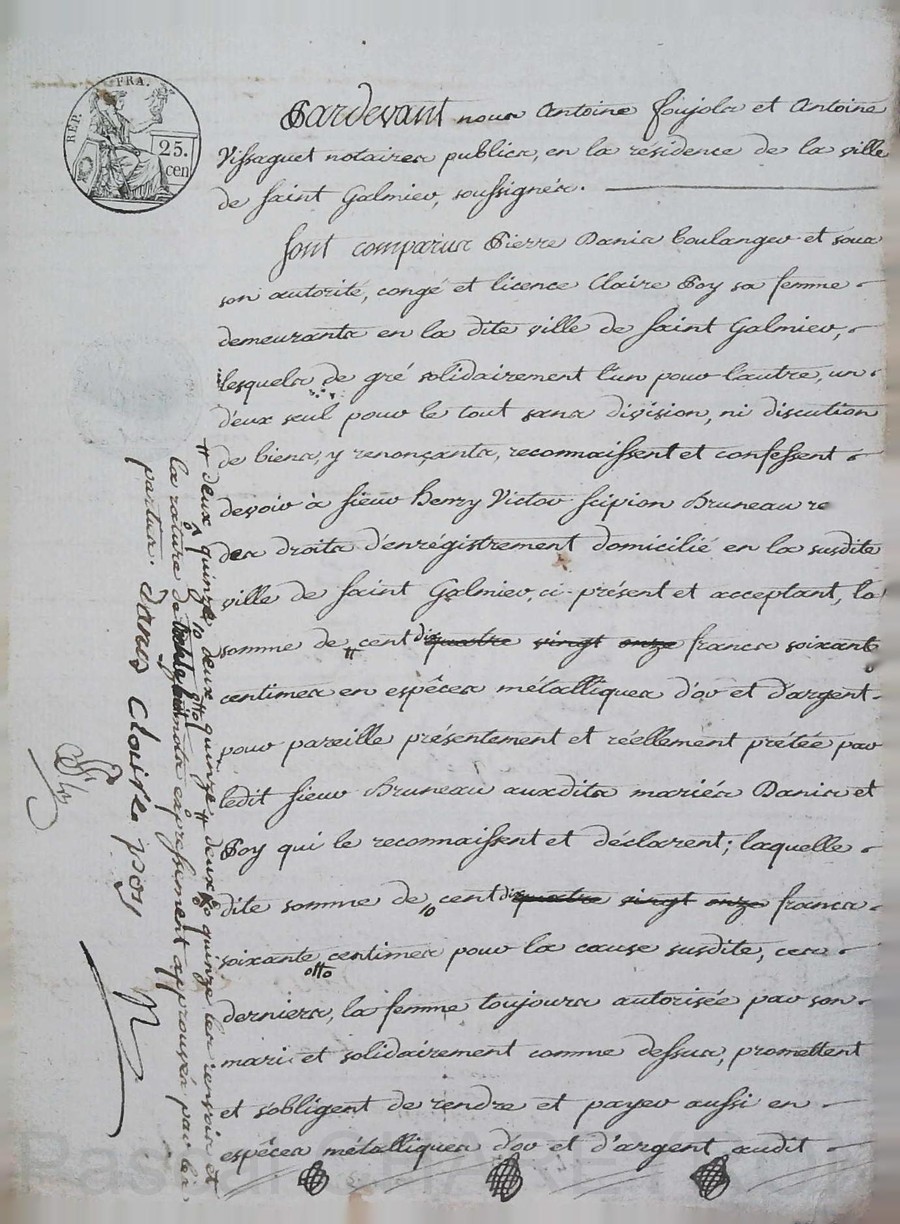 RÉP. FRA.
25.
cen
Pardevant nous Antoine Foujols et Antoine
Vissaguet notaires publics, en la résidence de la ville
de Saint Galmier, soussignés.
Sont comparus Pierre Danis boulanger et sous
son autorité, congé et licence Claire Poy sa femme
demeurants en la dite ville de Saint Galmier,
lesquels de gré solidairement l'un pour l'autre, un
d'eux seul pour le tout sans division, ni discution
de biens, y renonçants, reconnaissent et confessent
devoir à Sieur Henry Victor Scipion Bruneau re
des droits d'enrégistrement domicilié en la susdite
ville de Saint Galmier, ci-présent et acceptant, la
somme de # cent dix quatre vingt onze francs soixante
centimes en espèces métalliques d'or et d'argent
pour pareille présentement et réellement prêtée par
ledit Sieur Bruneau auxdits mariés Danis et
Poy qui le reconnaissent et déclarent; laquelle
dite somme de cent dix quatre vingt onze francs
soixante centimes pour la cause susdite, ces
otto
derniers, la femme toujours autorisée par son
mari et solidairement comme dessus, promettent
et s'obligent de rendre et payer aussi en
espèces métalliques d'or et d'argent audit
# deux quinze 10 deux quinze # deux quinze les renvois et
la rature de mots expressément approuvés par les
parties. danis Claire poy
Pascal CHAMBON